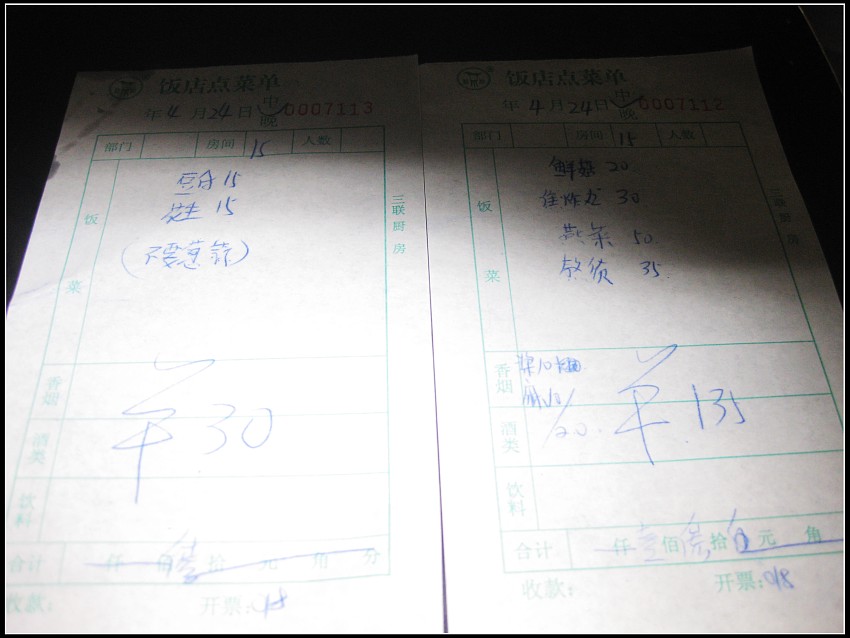 饭店点菜单
年 4 月 24 日 中 晚 0007113
部门 房间 15 人数
饭菜
豆腐 15
花生 15
(不要葱蒜)
三联厨房
香烟
¥30
酒类
饮料
合计 仟 佰 拾 元 角 分
收款: 开票: 018
饭店点菜单
年 4 月 24 日 中 晚 0007112
部门 房间 15 人数
饭菜
鲜菇 20
30
燕菜 50
35
三联厨房
香烟
¥135
酒类
/20.
饮料
合计 仟 壹 佰 叁 拾 伍 元 角
收款: 开票: 018